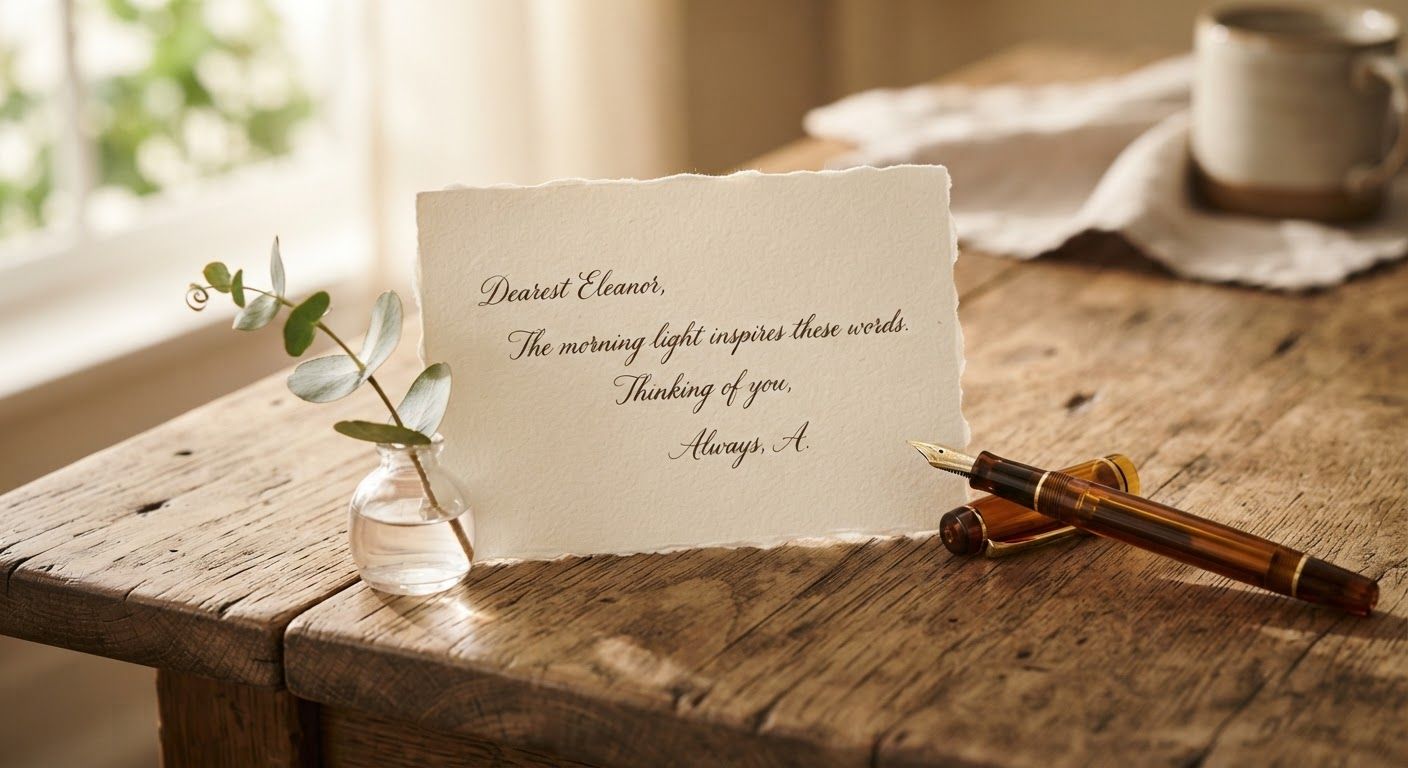 Dearest Eleanor,
The morning light inspires these words.
Thinking of you,
Always, A.